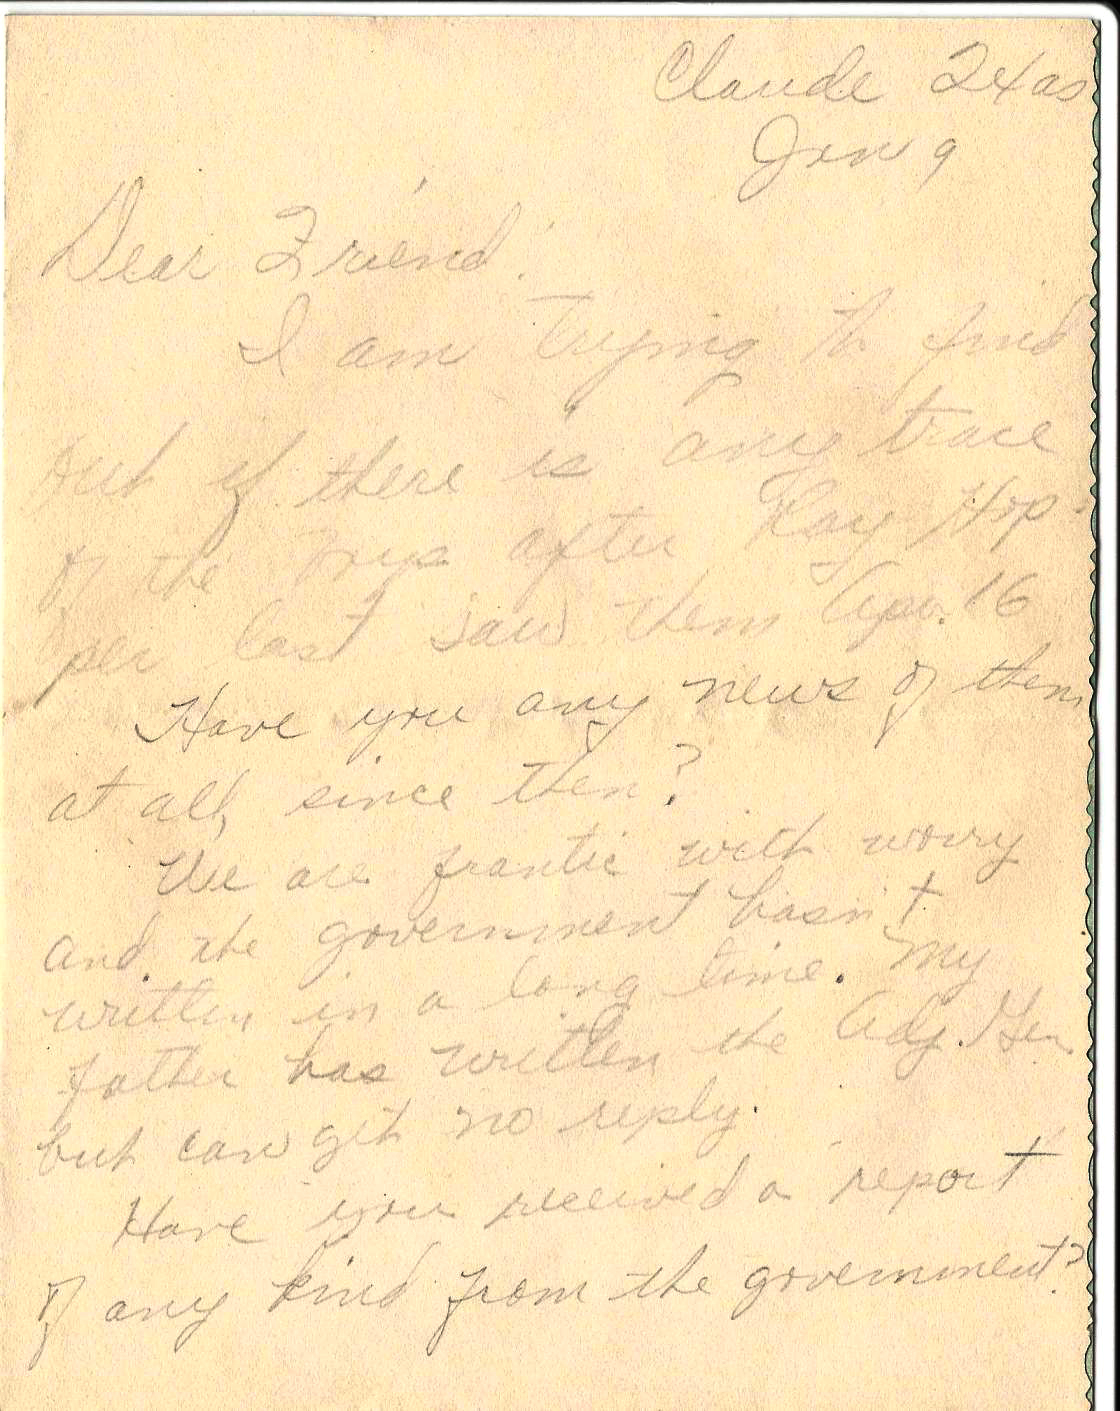 Claude Texas
Jan 9
Dear Friend:
I am trying to find
out if there is any trace
of the boys after Ray Hop-
per last saw them Apr. 16
Have you any news of them
at all, since then?
We are frantic with worry
and the government hasn't
written in a long time. My
father has written the Adj. Gen.
but can get no reply.
Have you received a report
of any kind from the government?